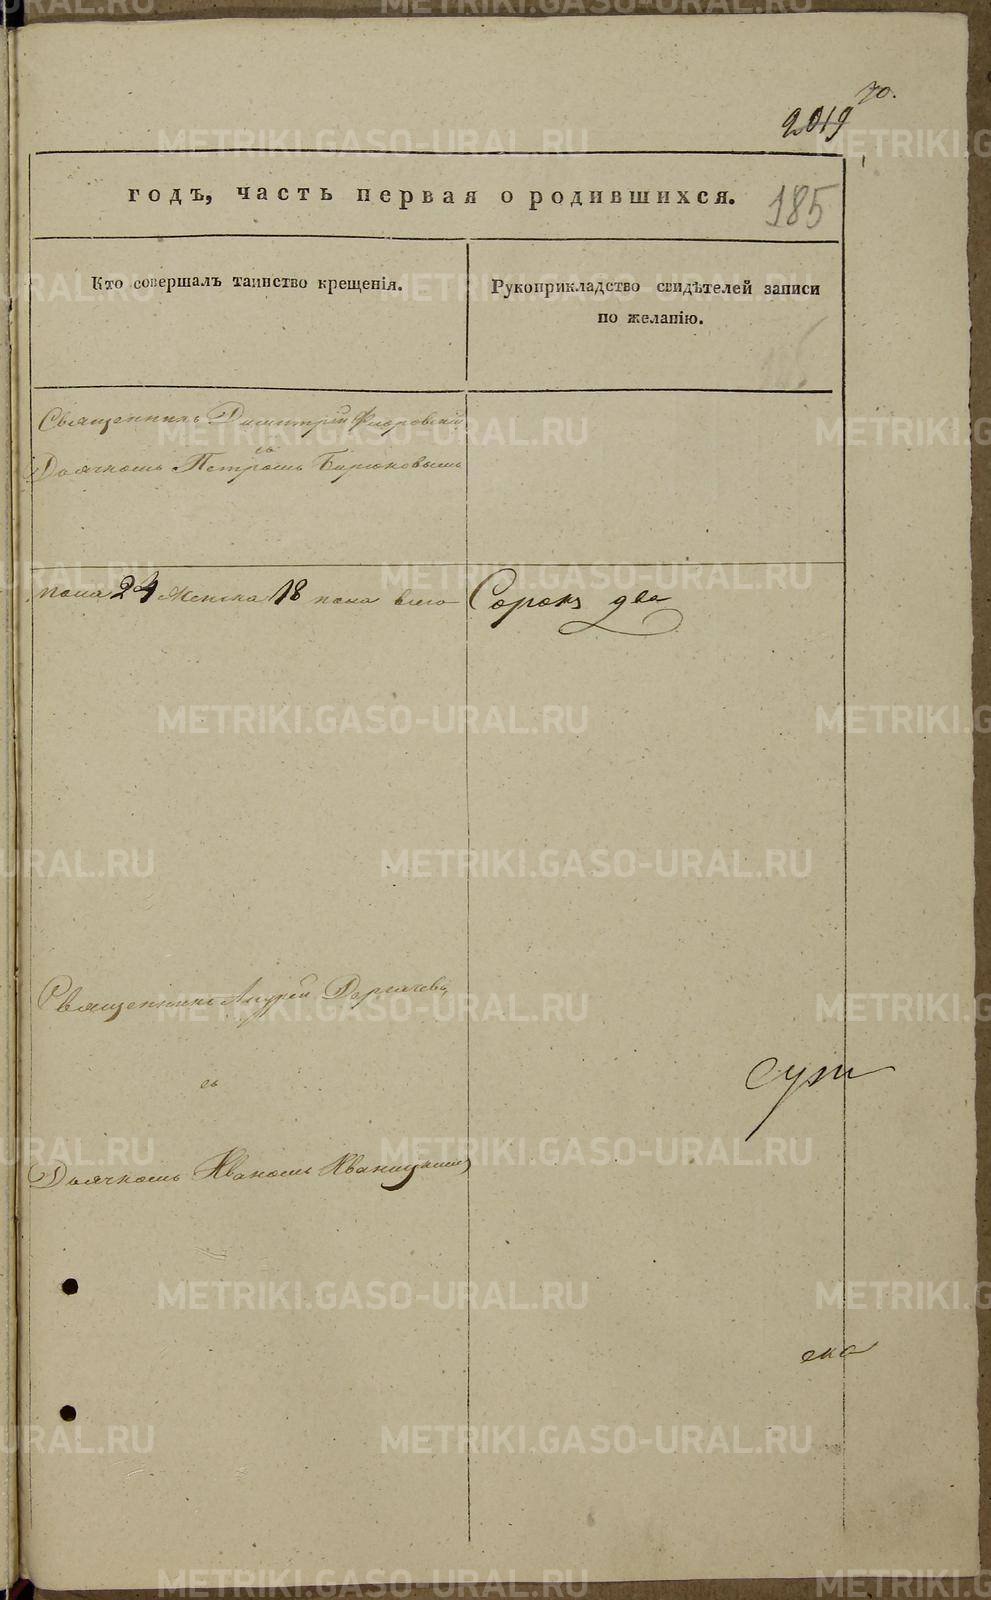 70.
2019
годъ, часть первая о родившихся.
185
Кто совершалъ таинство крещенія.
Рукоприкладство свидѣтелей записи
по желанію.
Священникъ Димитрій Флоровскій
съ
Дьячкомъ Петромъ Бирюковымъ
пола 24 женска 18 пола всего Сорокъ два
Священникъ Андрей Дергачевъ
съ
Дьячкомъ Иваномъ Иваницкимъ
METRIKI.GASO-URAL.RU